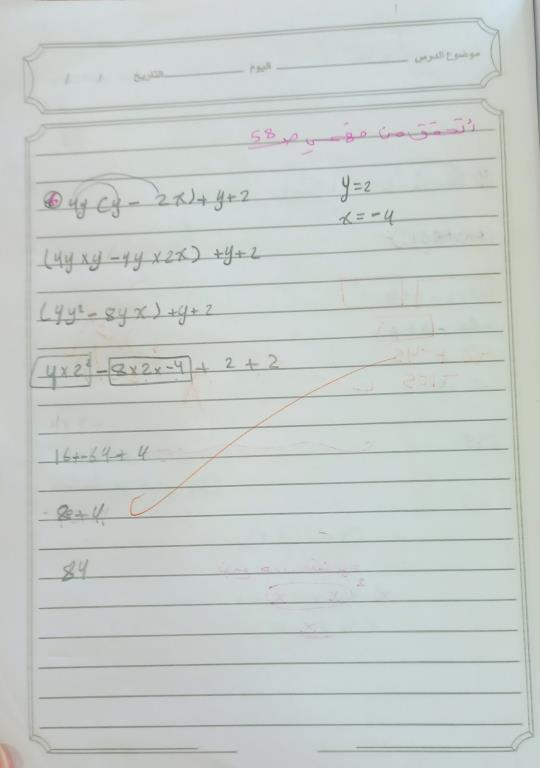 موضوع الدرس اليوم التاريخ / /
أتحقق من فهمي ص 58
6 4y(y - 2x) + y + 2 y = 2
x = -4
(4y × y - 4y × 2x) + y + 2
(4y² - 8yx) + y + 2
4 × 2² - 8 × 2 × -4 + 2 + 2
16 + -64 + 4
80 + 4
84